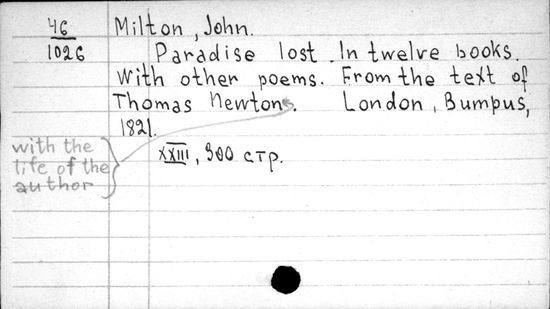 46
1026
Milton, John.
Paradise lost. In twelve books.
With other poems. From the text of
Thomas Newton. London, Bumpus,
1821.
with the
life of the
author
XXIII, 300 стр.